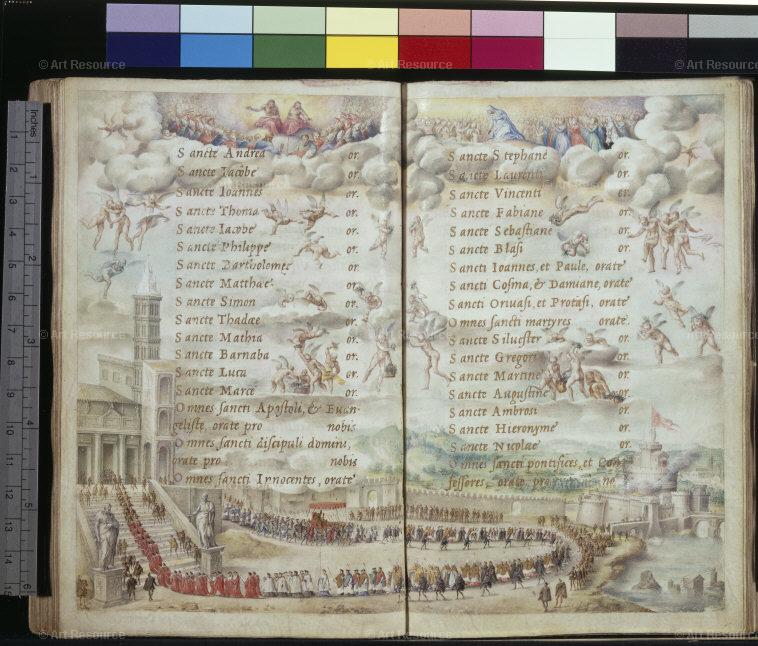 Sancte Andrea or.
Sancte Iacobe or.
Sancte Ioannes or.
Sancte Thoma or.
Sancte Iacobe or.
Sancte Philippe or.
Sancte Bartholomeę or.
Sancte Matthaē or.
Sancte Simon or.
Sancte Thadæe or.
Sancte Mathia or.
Sancte Barnaba or.
Sancte Luca or.
Sancte Marce or.
Omnes ſancti Apoſtoli, & Euan-
geliſtę, orate pro nobis
Omnes ſancti diſcipuli domini,
orate pro nobis
Omnes ſancti Innocentes, orate
Sancte Stephane or.
Sancte Laurenti or.
Sancte Vincenti or.
Sancte Fabiane or.
Sancte Sebaſtiane or.
Sancte Blaſi or.
Sancti Ioannes, et Paule, orate
Sancti Coſma, & Damiane, orate
Sancti Gruaſi, et Protaſi, orate
Omnes ſancti martyres orate.
Sancte Silueſter or.
Sancte Gregori or.
Sancte Martine or.
Sancte Auguſtine or.
Sancte Ambroſi or.
Sancte Hieronyme or.
Sancte Nicolae or.
Omnes ſancti pontifices, et Con
feſſores, orate pro no
Inches
1 2 3 4 5 6
1 2 3 4 5 6 7 8 9 10 11 12 13 14 15
© Art Resource
© Art Resource
© Art Resource
© Art Resource
© Art Resource
© Art Resource
© Art Resource
© Art Resource
© Art Resource